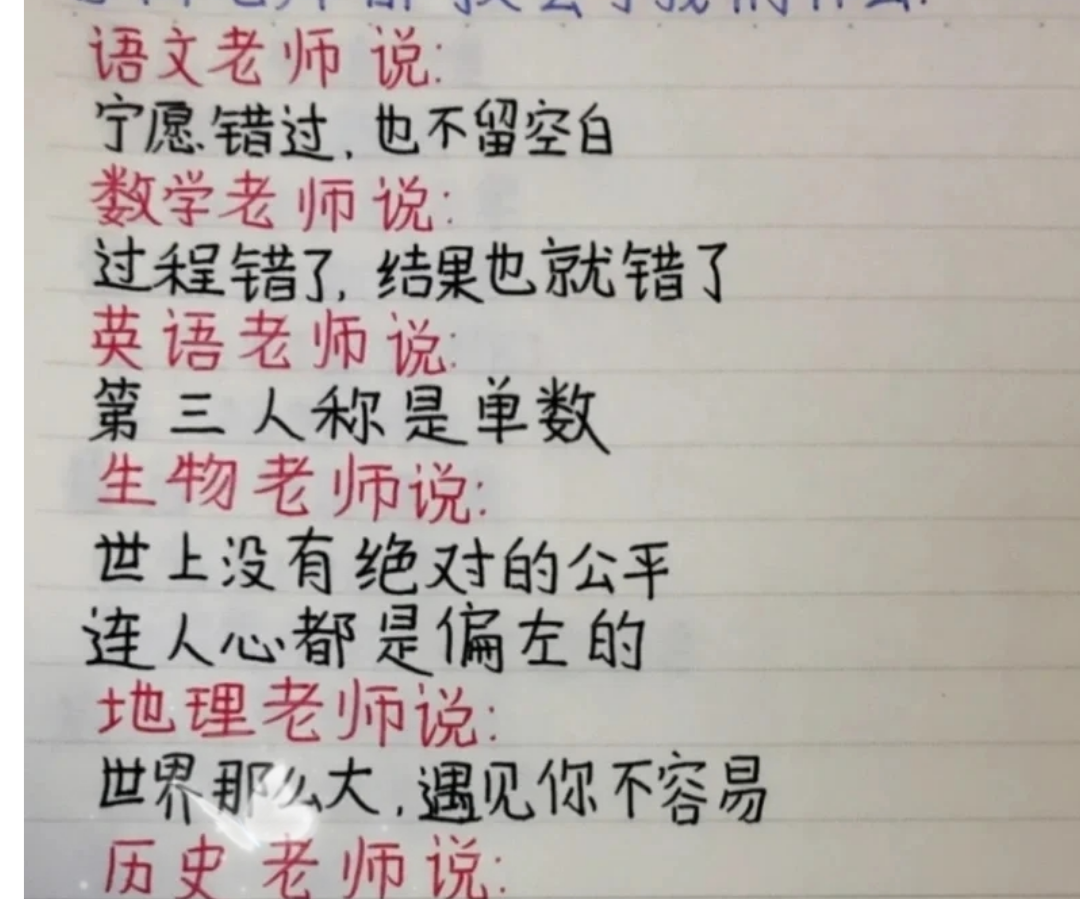 语文老师说:
宁愿错过,也不留空白
数学老师说:
过程错了,结果也就错了
英语老师说:
第三人称是单数
生物老师说:
世上没有绝对的公平
连人心都是偏左的
地理老师说:
世界那么大,遇见你不容易
历史老师说: